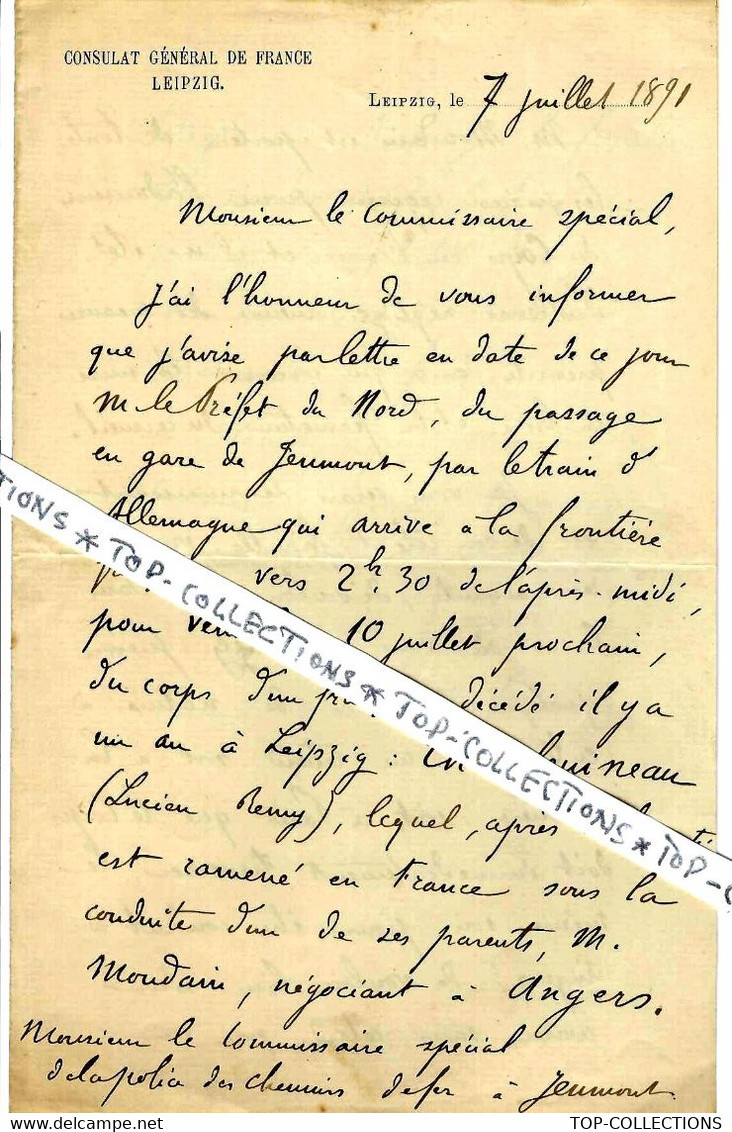 CONSULAT GÉNÉRAL DE FRANCE
LEIPZIG.
LEIPZIG, le 7 juillet 1891
Monsieur le Commissaire spécial,
j'ai l'honneur de vous informer
que j'avise par lettre en date de ce jour
M le Préfet du Nord, du passage
en gare de Jeumont, par le train d'
Allemagne qui arrive à la frontière
vers 2h.30 de l'après-midi,
pour 10 juillet prochain,
du corps d'un décédé il y a
un an à Leipzig :
(Lucien Remy), lequel, après
est ramené en France sous la
conduite d'un de ses parents, M.
Moudain, négociant à Angers.
Monsieur le Commissaire spécial
de la police des chemins de fer à Jeumont.
TIONS * TOP-COLLECTIONS * TOP-COLLECTIONS * TOP-C
TOP-COLLECTIONS